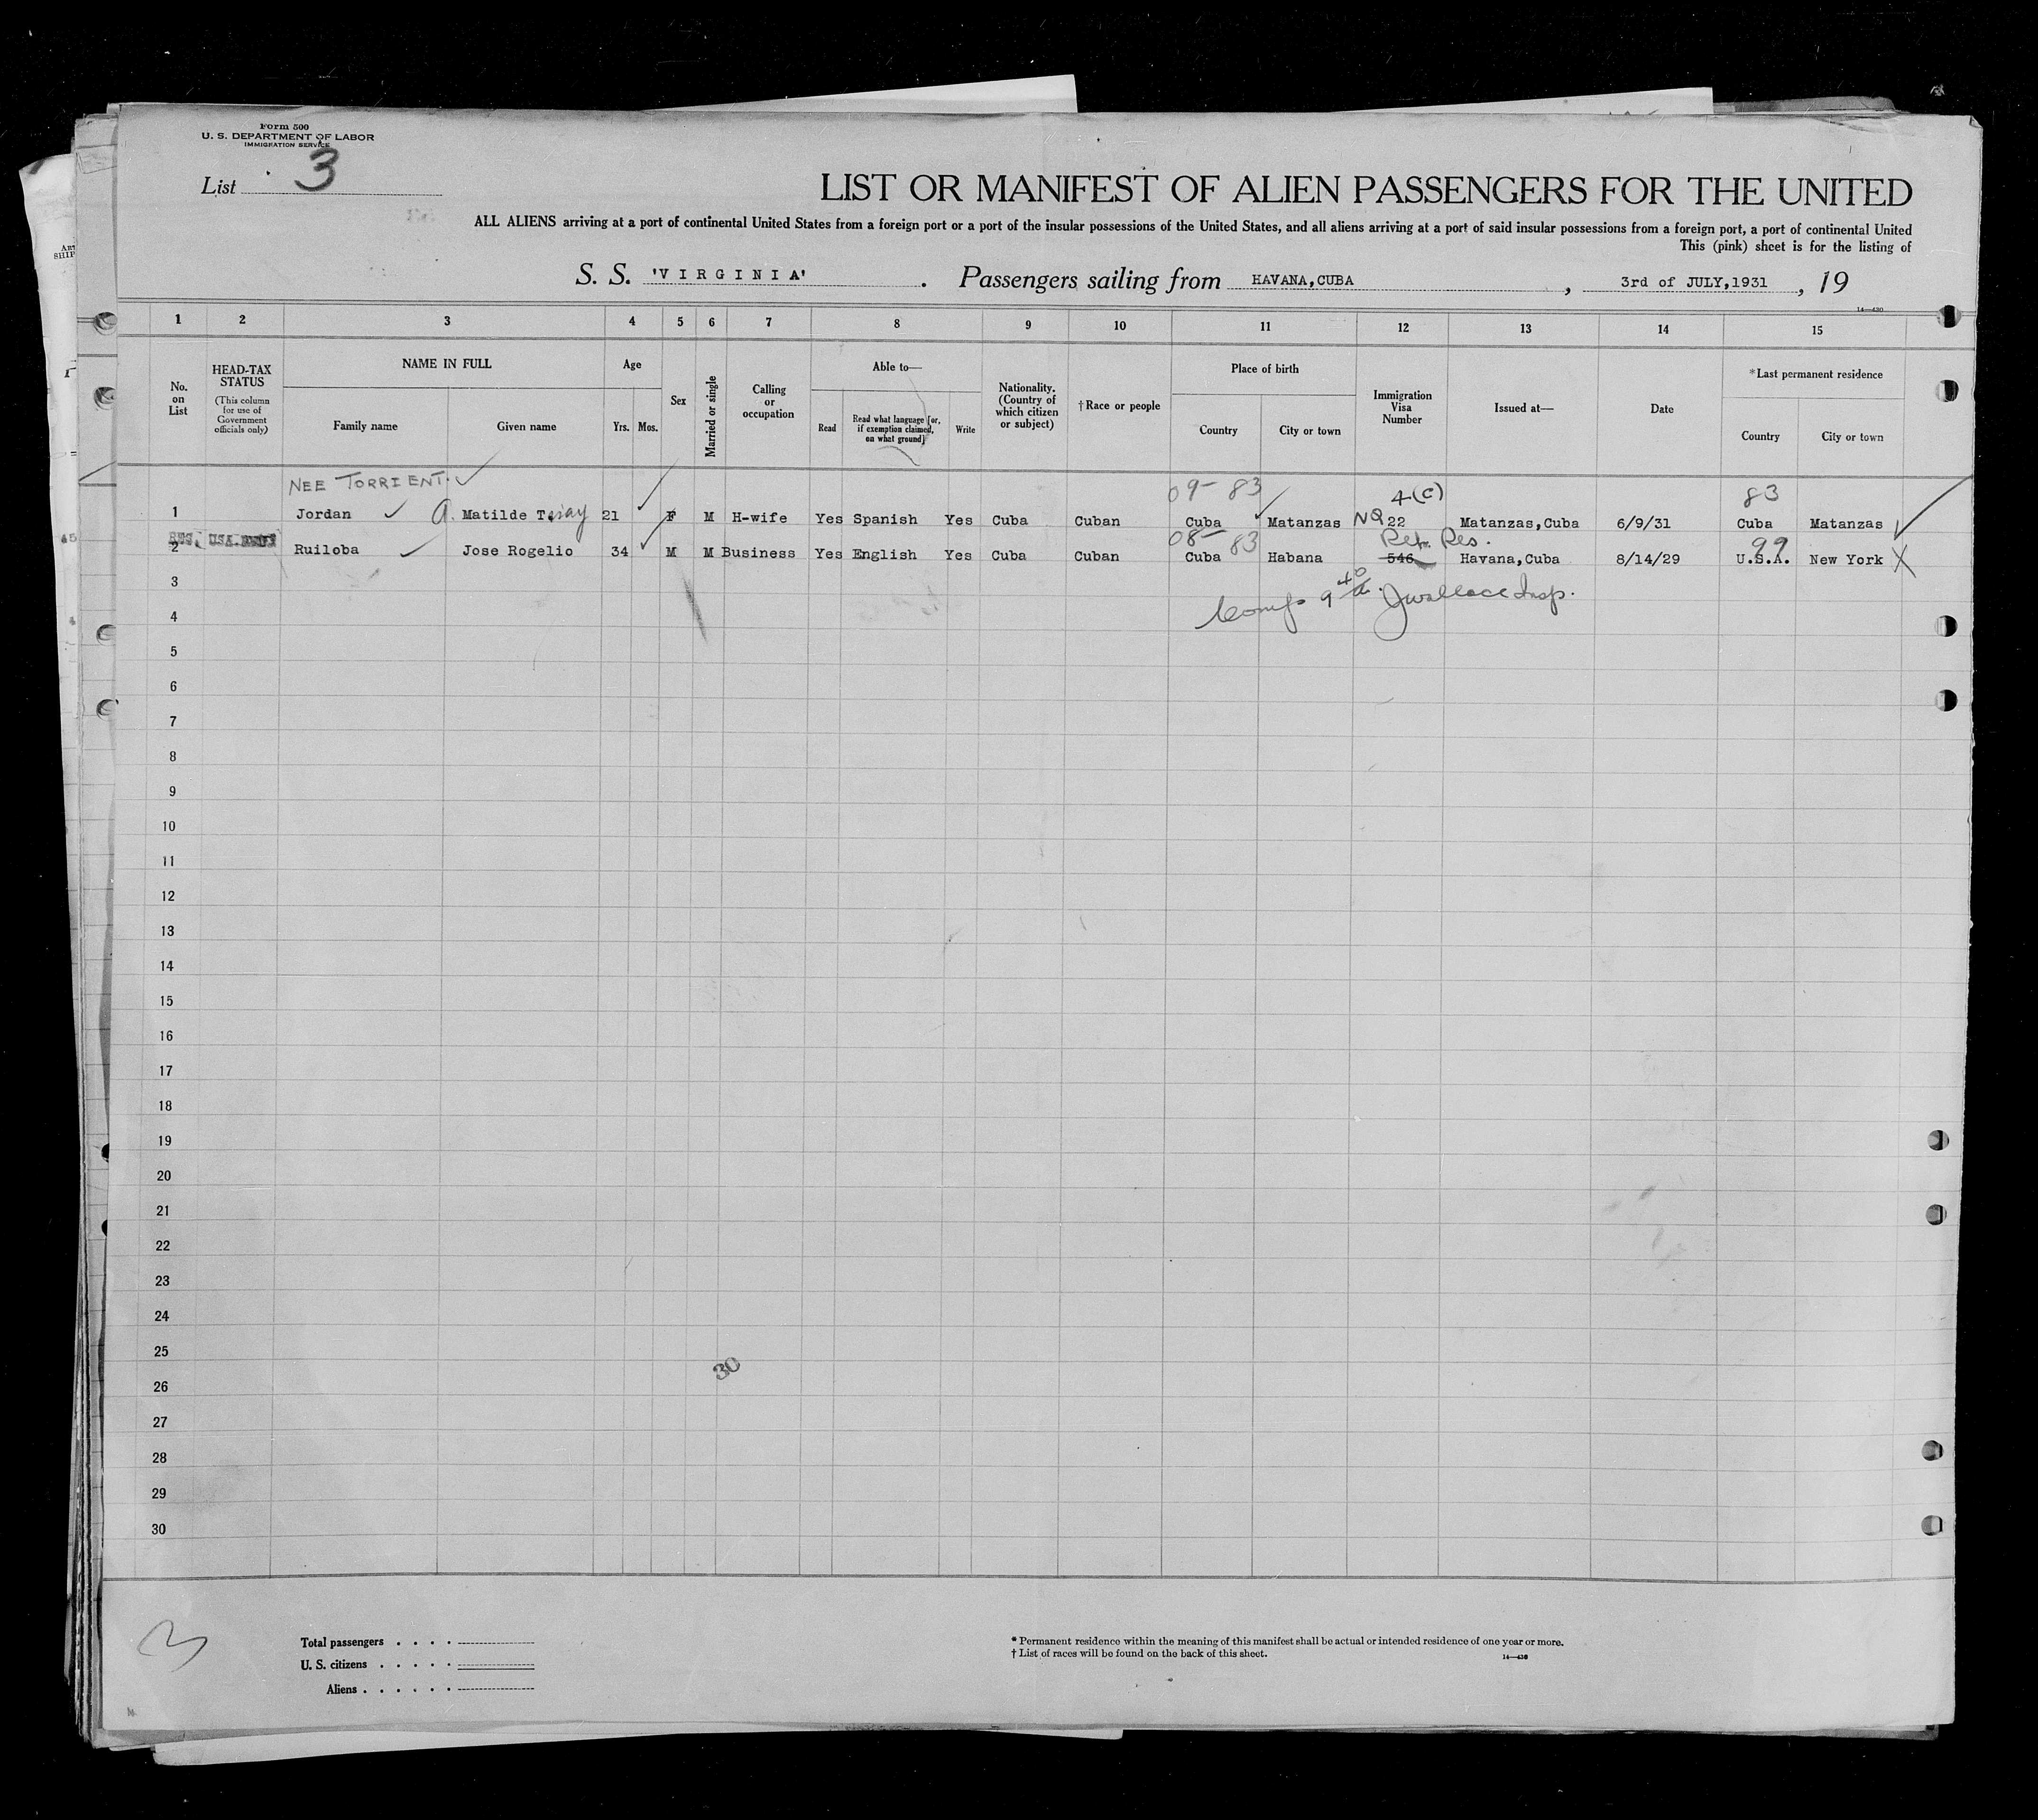 Form 500
U. S. DEPARTMENT OF LABOR
IMMIGRATION SERVICE
List 3
LIST OR MANIFEST OF ALIEN PASSENGERS FOR THE UNITED
ALL ALIENS arriving at a port of continental United States from a foreign port or a port of the insular possessions of the United States, and all aliens arriving at a port of said insular possessions from a foreign port, a port of continental United
This (pink) sheet is for the listing of
S. S. 'VIRGINIA' . Passengers sailing from HAVANA,CUBA , 3rd of JULY,1931 , 19
14—430
1 2 3 4 5 6 7 8 9 10 11 12 13 14 15
No. on List
HEAD-TAX STATUS
(This column for use of Government officials only)
NAME IN FULL
Family name Given name
Age
Yrs. Mos.
Sex
Married or single
Calling or occupation
Able to—
Read Read what language [or, if exemption claimed, on what ground] Write
Nationality. (Country of which citizen or subject)
†Race or people
Place of birth
Country City or town
Immigration Visa Number
Issued at—
Date
*Last permanent residence
Country City or town
NEE TORRIENT. 09- 83 4(C) 83
1 Jordan a. Matilde T. 21 F M H-wife Yes Spanish Yes Cuba Cuban Cuba Matanzas NQ 22 Matanzas,Cuba 6/9/31 Cuba Matanzas
08- 83 Ret. Res. 99
2 Ruiloba Jose Rogelio 34 M M Business Yes English Yes Cuba Cuban Cuba Habana 546 Havana,Cuba 8/14/29 U.S.A. New York X
3
Wallace Insp.
4
5
6
7
8
9
10
11
12
13
14
15
16
17
18
19
20
21
22
23
24
25
30
26
27
28
29
30
3
Total passengers . . . .
U. S. citizens . . . . .
Aliens . . . . . .
* Permanent residence within the meaning of this manifest shall be actual or intended residence of one year or more.
† List of races will be found on the back of this sheet.
14—430